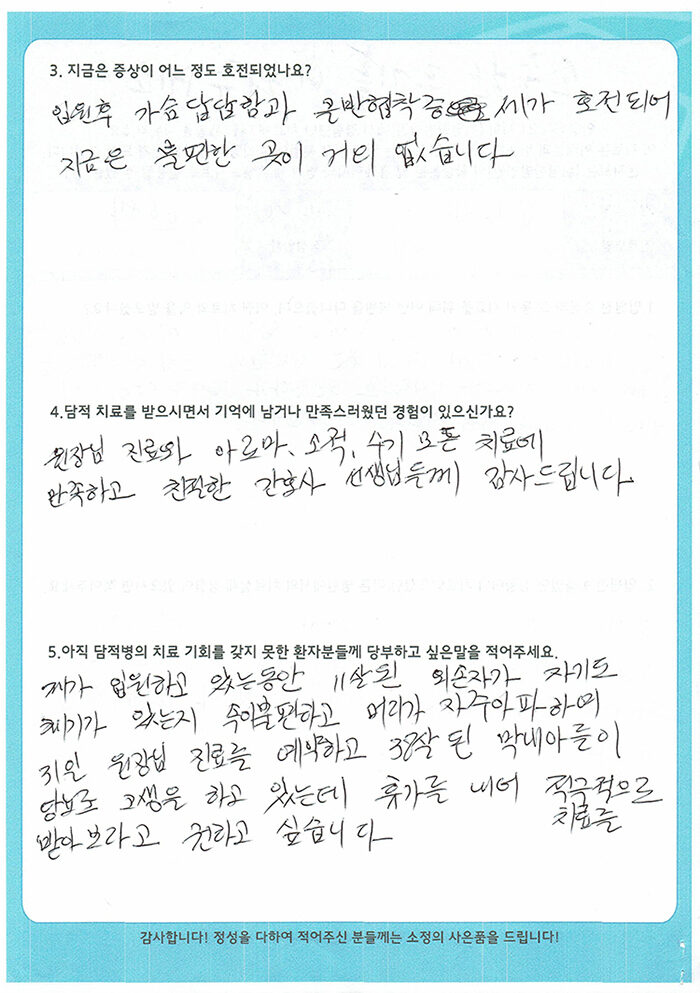 3. 지금은 증상이 어느 정도 호전되었나요?
입원후 가슴답답함과 세가 호전되어
지금은 불편한 곳이 거의 없습니다
4.담적 치료를 받으시면서 기억에 남거나 만족스러웠던 경험이 있으신가요?
원장님 진료와 아로마, 소적, 수기 모든 치료에
만족하고 친절한 간호사 선생님들께 감사드립니다
5.아직 담적병의 치료 기회를 갖지 못한 환자분들께 당부하고 싶은말을 적어주세요.
제가 입원하고 있는동안 11살된 외손자가 자기도
있는지 속이불편하고 머리가 자주아파하며
31일 원장님 진료를 예약하고 38살된 막내아들이
고생을 하고 있는데 휴가를 내어 적극적으로
치료를
받아보라고 권하고 싶습니다
감사합니다! 정성을 다하여 적어주신 분들께는 소정의 사은품을 드립니다!